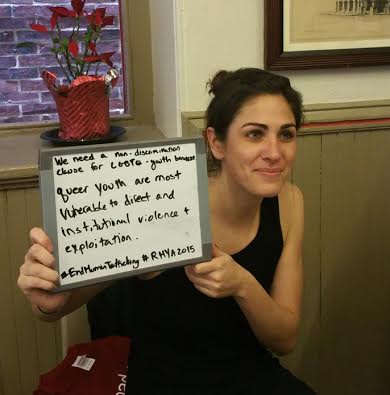 We need a non-discrimination
clause for LGBTQ youth because
queer youth are most
vulnerable to direct and
institutional violence +
exploitation.
#EndHumanTrafficking #RHYA2015